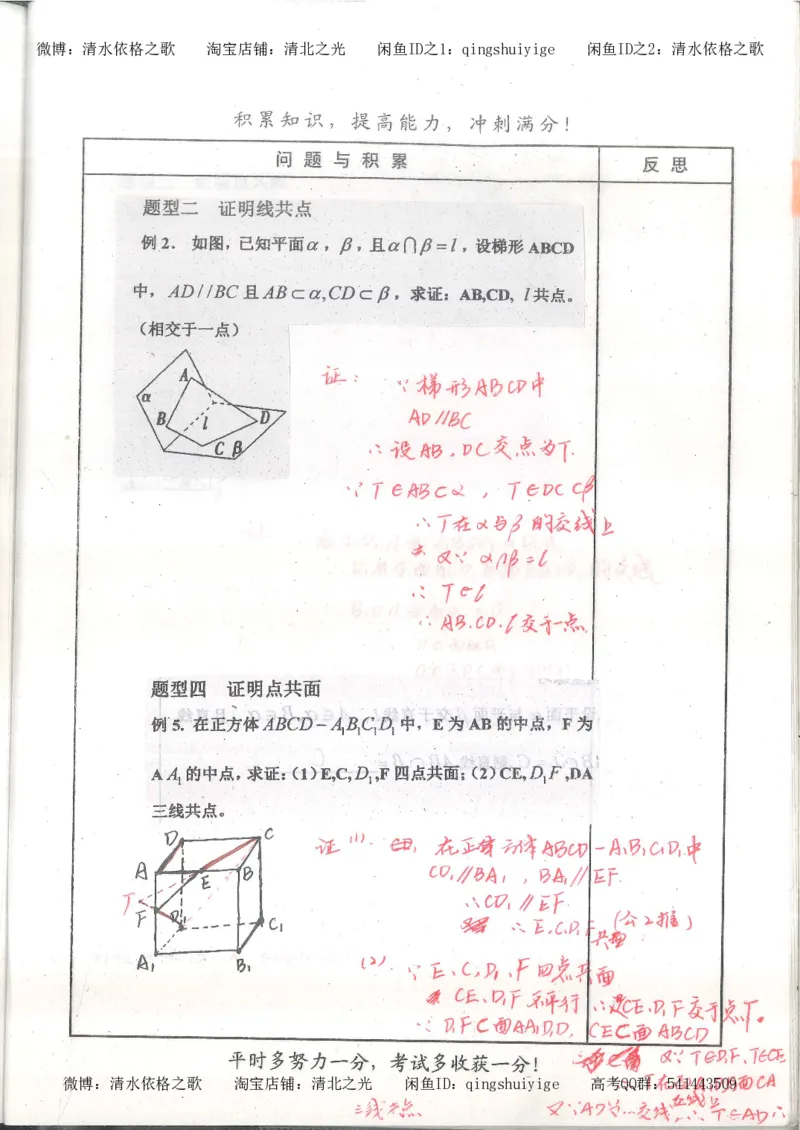 微博：清水依格之歌 淘宝店铺：清北之光 闲鱼ID之1：qingshuiyige 闲鱼ID之2：清水依格之歌
积累知识，提高能力，冲刺满分！
问题与积累 反思
题型二 证明线共点
例 2. 如图，已知平面α，β，且α∩β=l，设梯形 ABCD
中，AD//BC 且 AB⊂α,CD⊂β，求证：AB,CD, l 共点。
（相交于一点）
A
α
B l D
C β
证： ∵梯形ABCD中
AD//BC
∴设AB，DC交点为T.
∵T∈AB⊂α，T∈DC⊂β
∴T在α与β的交线上
又∵α∩β=l
∴T∈l
∴AB.CD.l交于一点.
题型四 证明点共面
例 5. 在正方体 ABCD－A₁B₁C₁D₁ 中，E 为 AB 的中点，F 为
A A₁ 的中点，求证：（1）E,C, D₁,F 四点共面；（2）CE, D₁F ,DA
三线共点。
D C
A E B
T
F D₁ C₁
A₁ B₁
证（1）. 在正方体ABCD－A₁B₁C₁D₁中
CD₁//BA₁，BA₁//EF.
∴CD₁//EF.
∴E.C.D₁.F共面（公2推）
（2） ∵E、C、D₁、F四点共面
CE、D₁F不平行 ∴设CE.D₁F交于点T。
∵D₁F⊂面AA₁D₁D. CE⊂面ABCD
又∵T∈D₁F、T∈CE
平时多努力一分，考试多收获一分！
微博：清水依格之歌 淘宝店铺：清北之光 闲鱼ID：qingshuiyige 高考QQ群：541443509
交线上
又∵AD为…交线 ∴T∈AD ∴
三线共点.